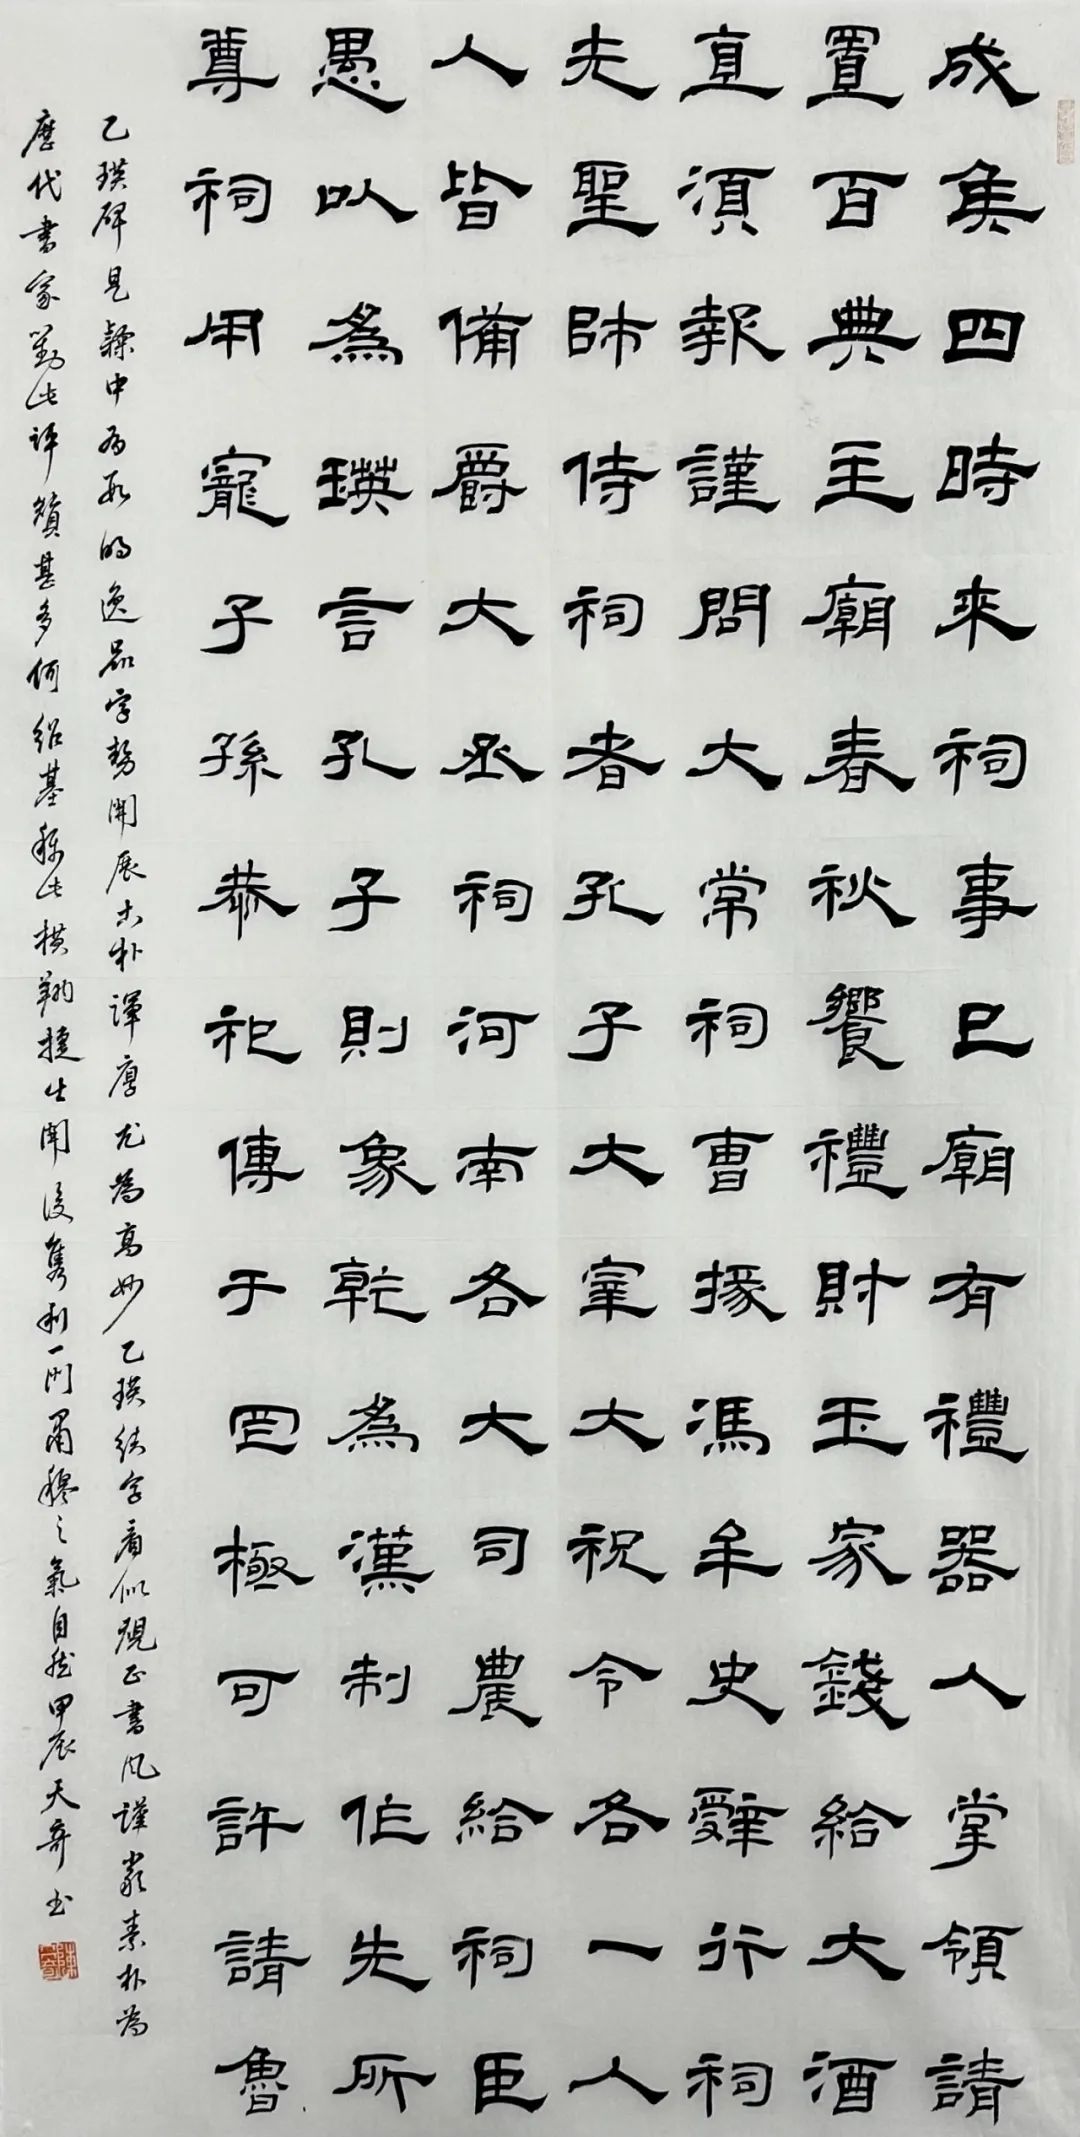 成侯四時來祠事已廟有禮器人掌領請
置百典主廟春秋饗禮財玉家錢給大酒
直須報謹問大常祠曹掾馮牟史辭行祠
先聖師侍祠者孔子大宰大祝令各一人
人皆備爵大丞祠河南各大司農給祠臣
愚以為瑛言孔子則象乾為漢制作先所
尊祠用寵子孫恭祀傳于罔極可許請魯
乙瑛碑是隸中的逸品字勢開展古朴渾厚尤為高妙乙瑛結字看似規正書風謹嚴素朴為
歷代書家對此評贊甚多何紹基稱此橫翔捷出開後雋利一門肅穆之氣自然甲辰天奇书
陳